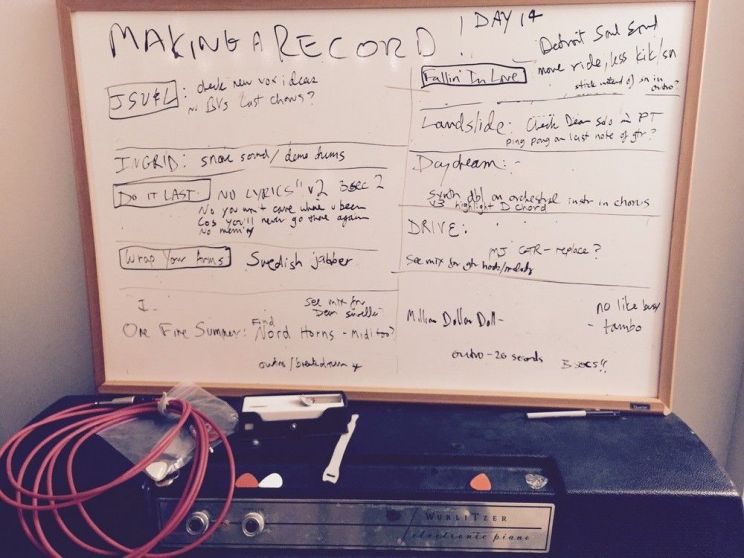 MAKING A RECORD! DAY 14
JSU&L: check new vox ideas
no BVs last chorus?
INGRID: snare sound/ demo hums
DO IT LAST: NO LYRICS" v2 3 sec 2
No you won't care where u been
Cos you'll never go there again
No memory
Wrap Your Arms Swedish jabber
I..
See mix for
Dean
One Fine Summer: Find Nord Horns - Midi too?
outros / breakdown
Detroit Soul Sound
Fallin' In Love more ride, less kik/sn
stick instead of sn in
outro?
Landslide: Check Dean Solo 2 PT
ping pong on last note of gtr?
Daydream:-
synth dbl on orchestral instr in chorus
v3 highlight D chord
DRIVE:
MJ GTR - replace?
See mix for gtr hook/melody
Million Dollar Doll-
no like busy
- tambo
outro - 20 seconds 3 secs!!
WURLITZER
electronic piano